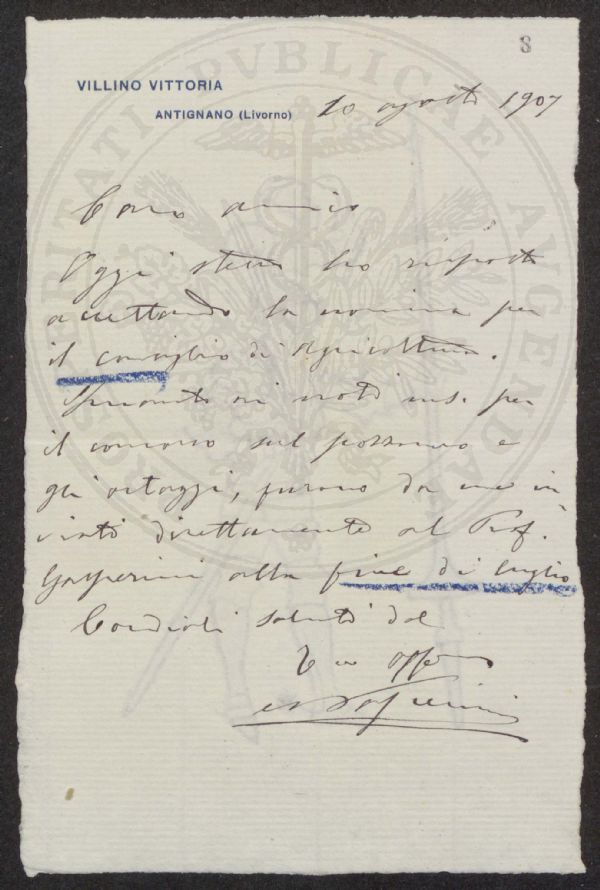 8
VILLINO VITTORIA
ANTIGNANO (Livorno)
10 agosto 1907
Caro amico
Oggi stesso ho risposto
accettando la nomina per
il consiglio di agricoltura.
Quanto ai noti ms. per
il concorso sul pozzo nero e
gli ortaggi, furono da me in
viati direttamente al Prof.
Gasperini alla fine di luglio
Cordiali saluti dal
Tuo aff